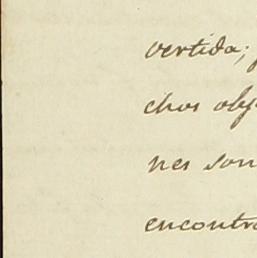 vertida;
chos obj
nes son
encontra